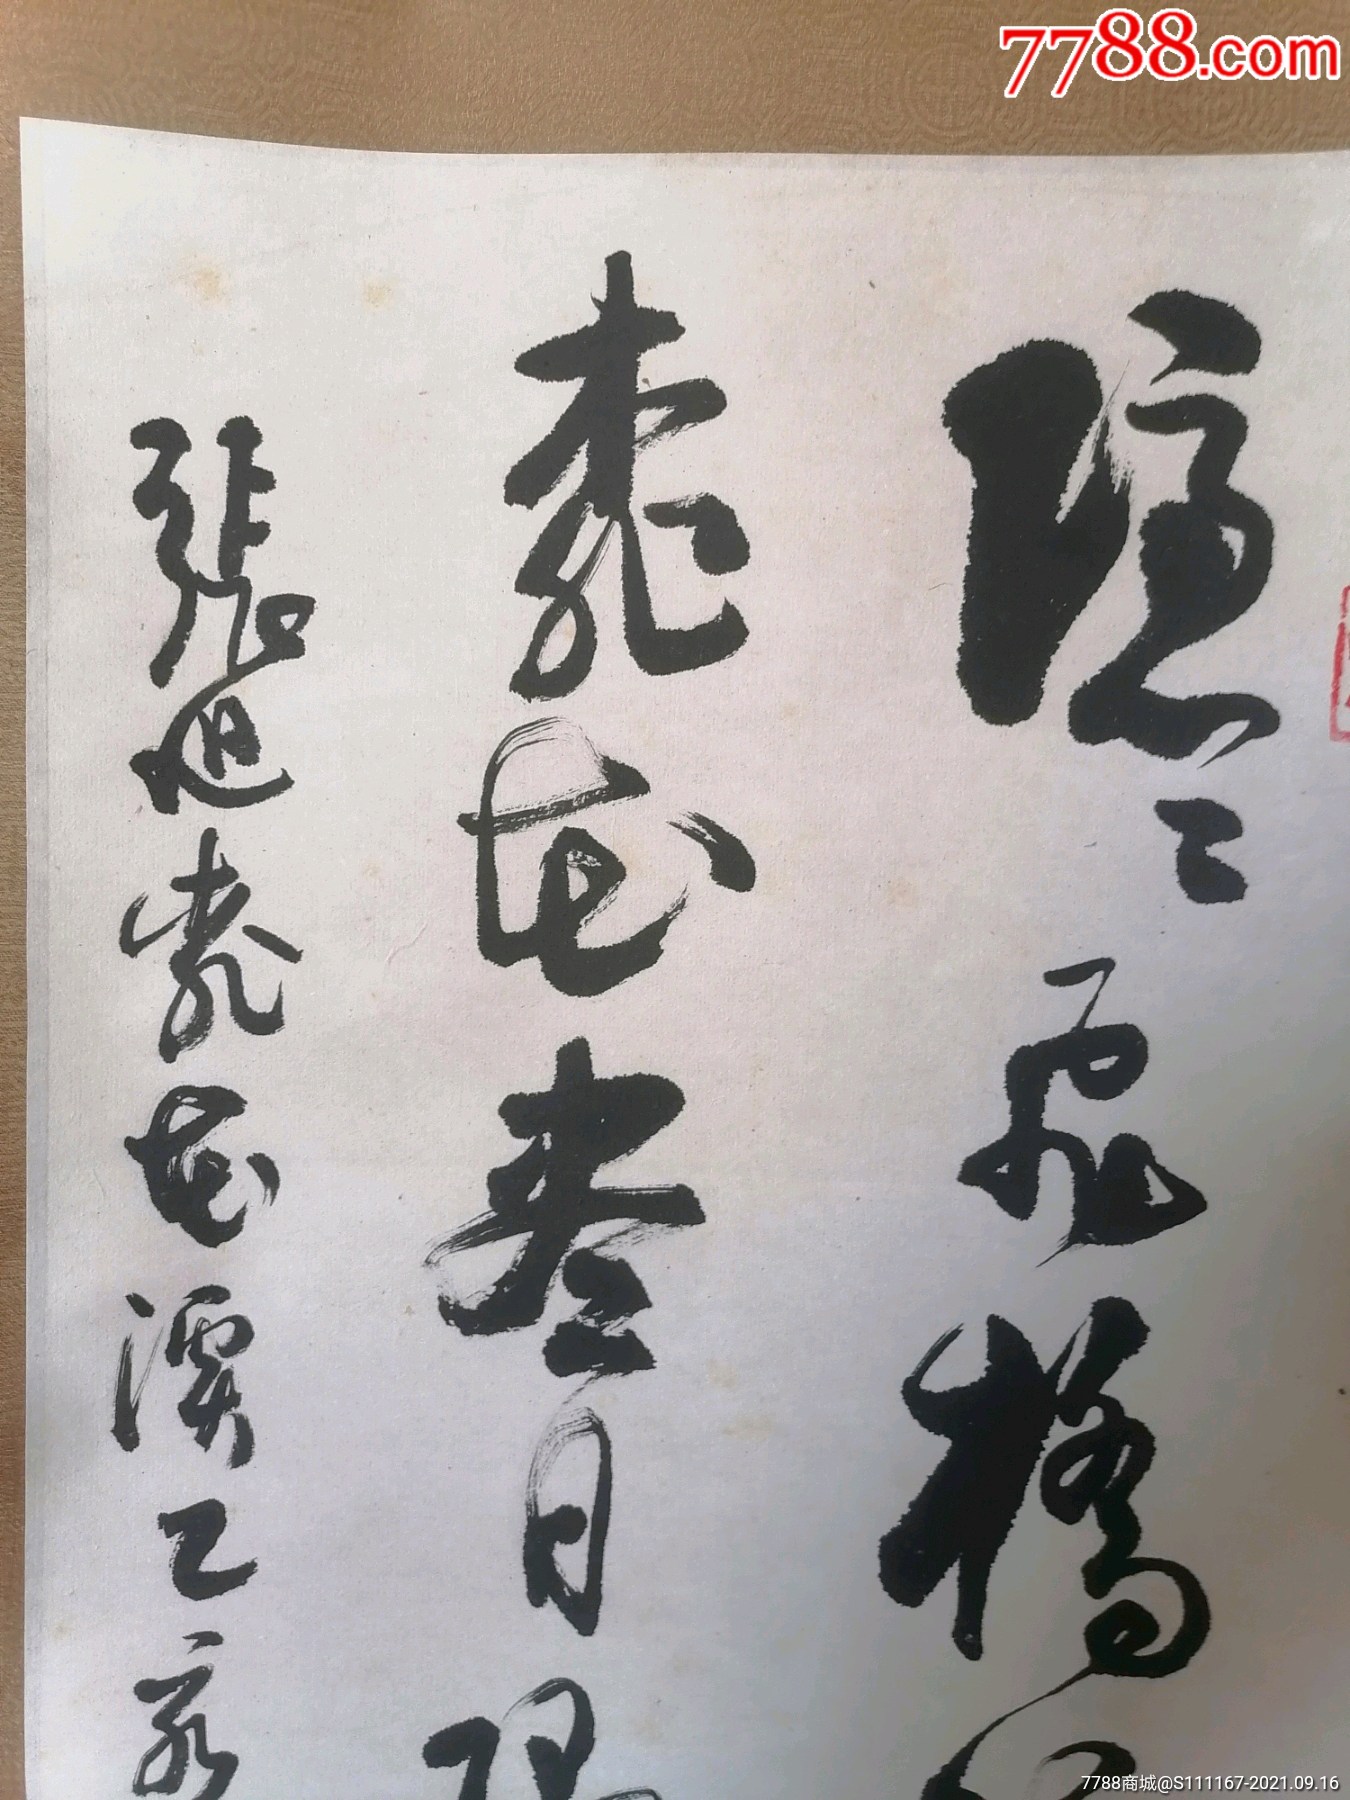 7788.com
隐々飛橋
桃花尽日
張旭桃花溪乙亥
7788商城@S111167-2021.09.16